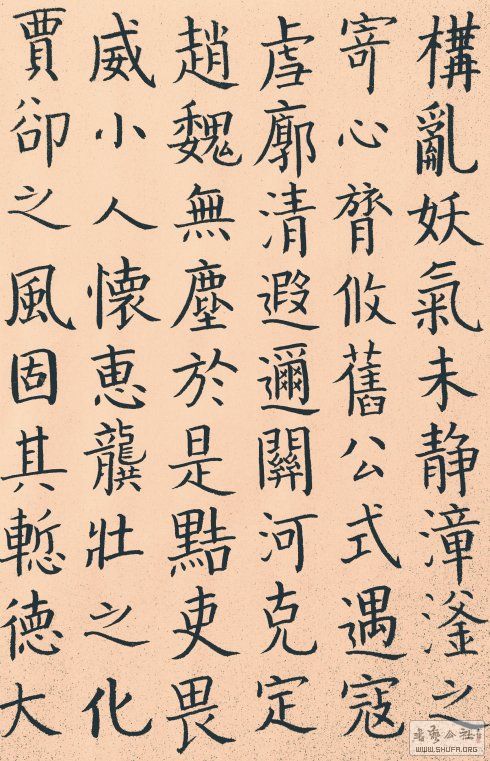 構亂妖氣未静漳滏之
寄心膂攸舊公式遇寇
虐廓清遐邇關河克定
趙魏無塵於是黠吏畏
威小人懷惠龔壯之化
賈卻之風固其慙德大
书艺公社
WWW.SHUFA.ORG